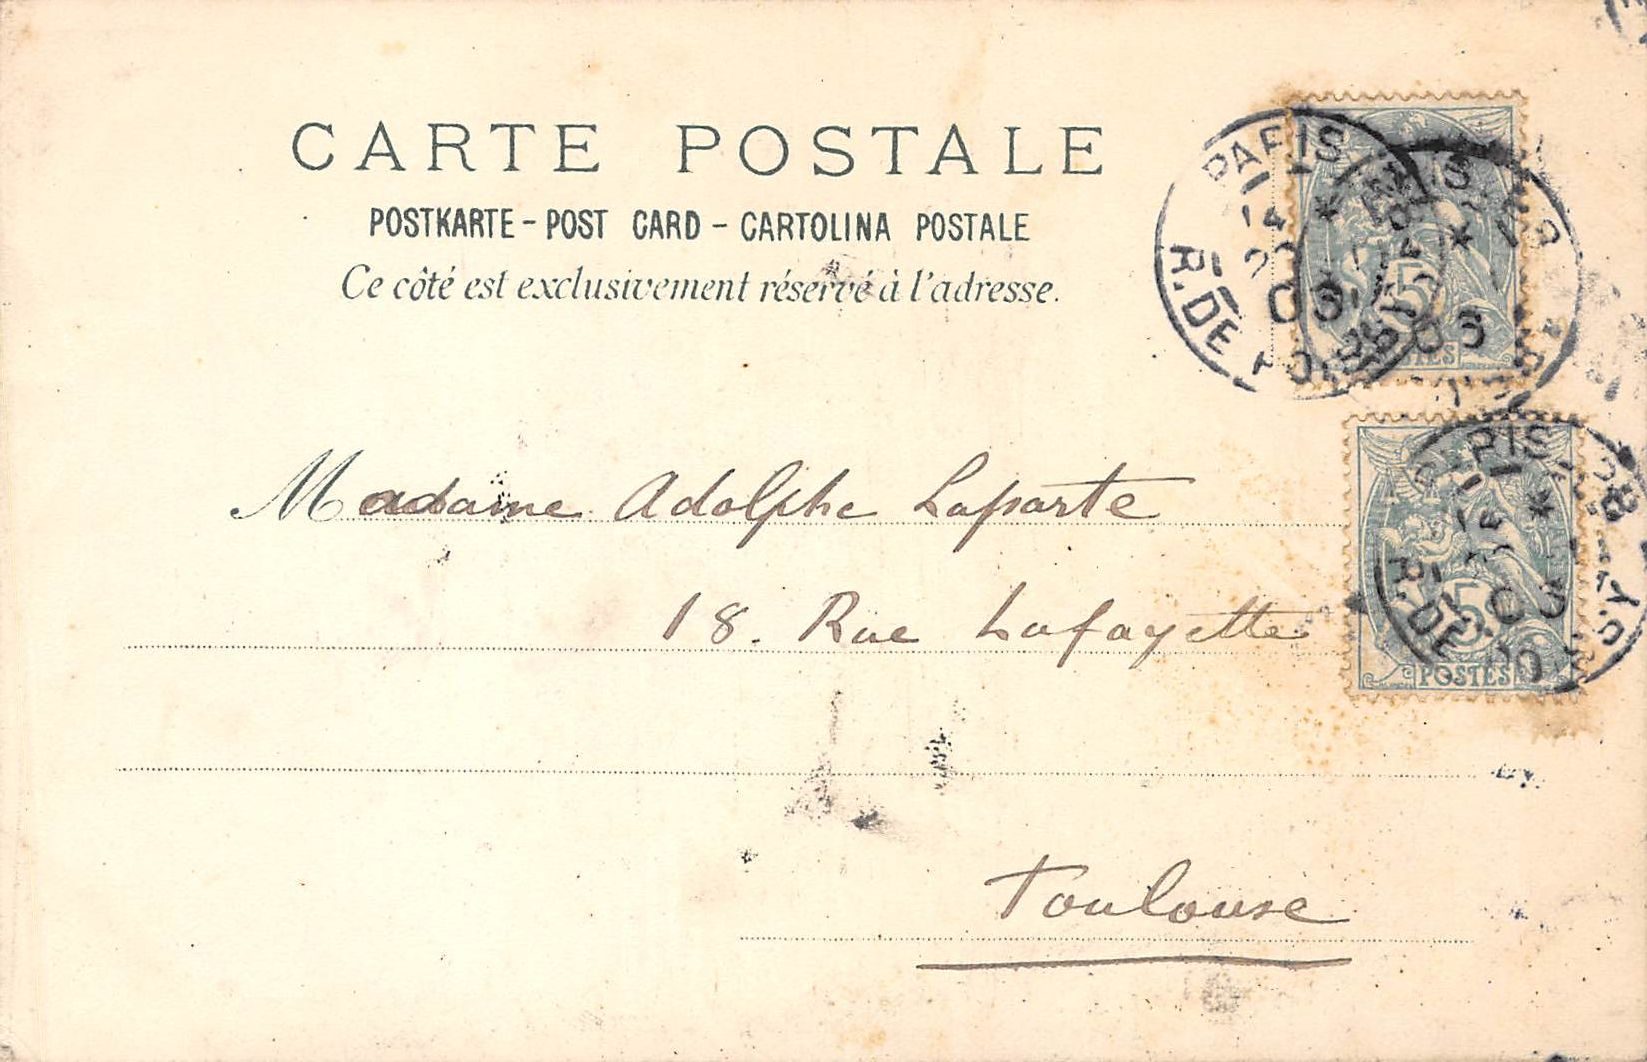 CARTE POSTALE
POSTKARTE - POST CARD - CARTOLINA POSTALE
Ce côté est exclusivement réservé à l'adresse.
PARIS
03
R. DE
5
03
Madame Adolphe Laparte
18. Rue Lafayette
R. DE
5
POSTES
Toulouse